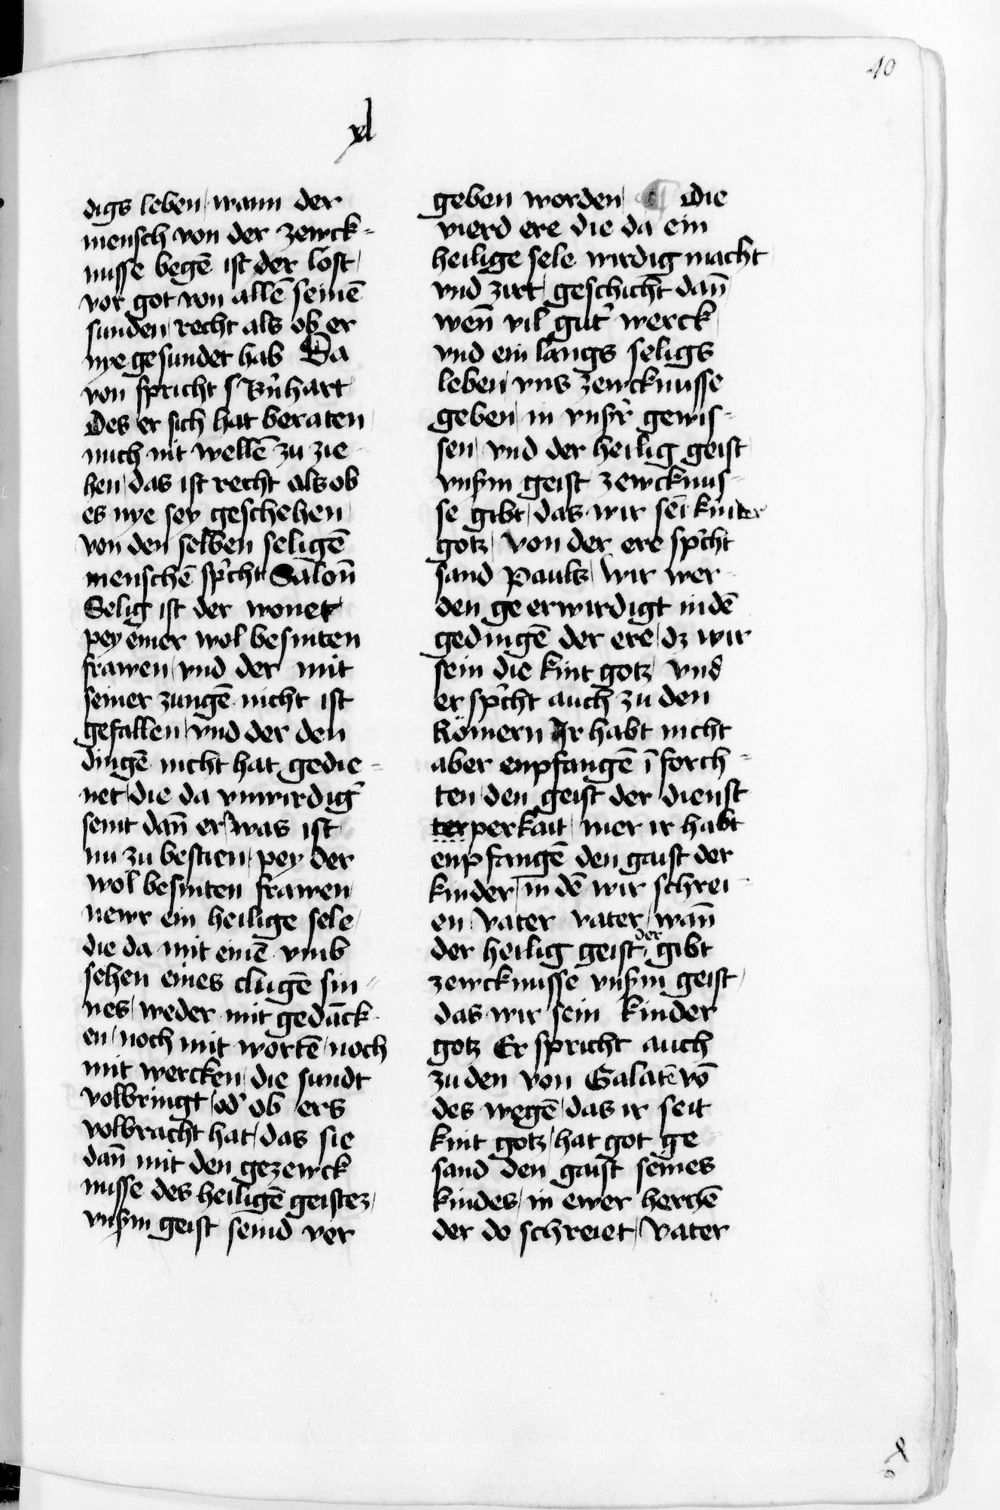 40
xl
digs leben / wann der
mensch von der zewck-
nusse begē ist der lost /
vor got von allē seinē
sunden / recht als ob er
nye gesundet hab Da
von spricht s Bn̄hart
Des er sich hat beraten /
mich nit wellē zu zie-
hen / das ist recht als ob
es nye sey geschehen /
von den selben seligē
menschē spͥcht Salon̄
Selig ist der wonet
pey einer wol besinten
frawen / vnd der mit
seiner zungē nicht ist
gefallen / vnd der den
dingē nicht hat gedie-
net / die da vnwirdig̛
seint dan̄ er / was ist
nu zu bestien / pey der
wol besinten frawen /
newr ein heilige sele /
die da mit einē vmb
sehen eines clugē sin-
nes / weder mit gedāck-
en / noch mit wortē / noch
mit wercken / die sundt
volbringt / od̛ ob ers
volbracht hat / das sie
dan̄ mit den gezewck
nusse des heiligē geistez /
vnßm geist seind ver
geben worden / ¶ Die
vierd ere die da ein
heilige sele wirdig macht /
vnd zirt / geschicht dan̄
wen̄ vil gut̛ werck /
vnd ein langs seligs
leben / vns zewcknusse
geben / in vnßr̛ gewis-
sen / vnd der heilig geist /
vnßm geist zewcknus-
se gibt / das wir sei kinder
gotz / von der ere spͥcht
sand Pauls / wir wer-
den ge erwirdigt in dē
gedingē der ere / dz wir
sein die kint gotz / vnd
er spͥcht auch zu den
Römern Ir habt nicht
aber enpfangē ī forch-
ten / den geist der dienst
ter perkait / mer ir habt
enpfangē den gaist der
kinder / in dē wir schrei-
en / vater vater / wan̄
der heilig geist der gibt
zewcknusse vnßm geist /
das wir sein kinder
gotz Er spricht auch
zu den von Galatē vō
des wegē / das ir seit
kint gotz / hat got ge
sand den gaist seines
kindes / in ewer herczē
der do schreiet / vater